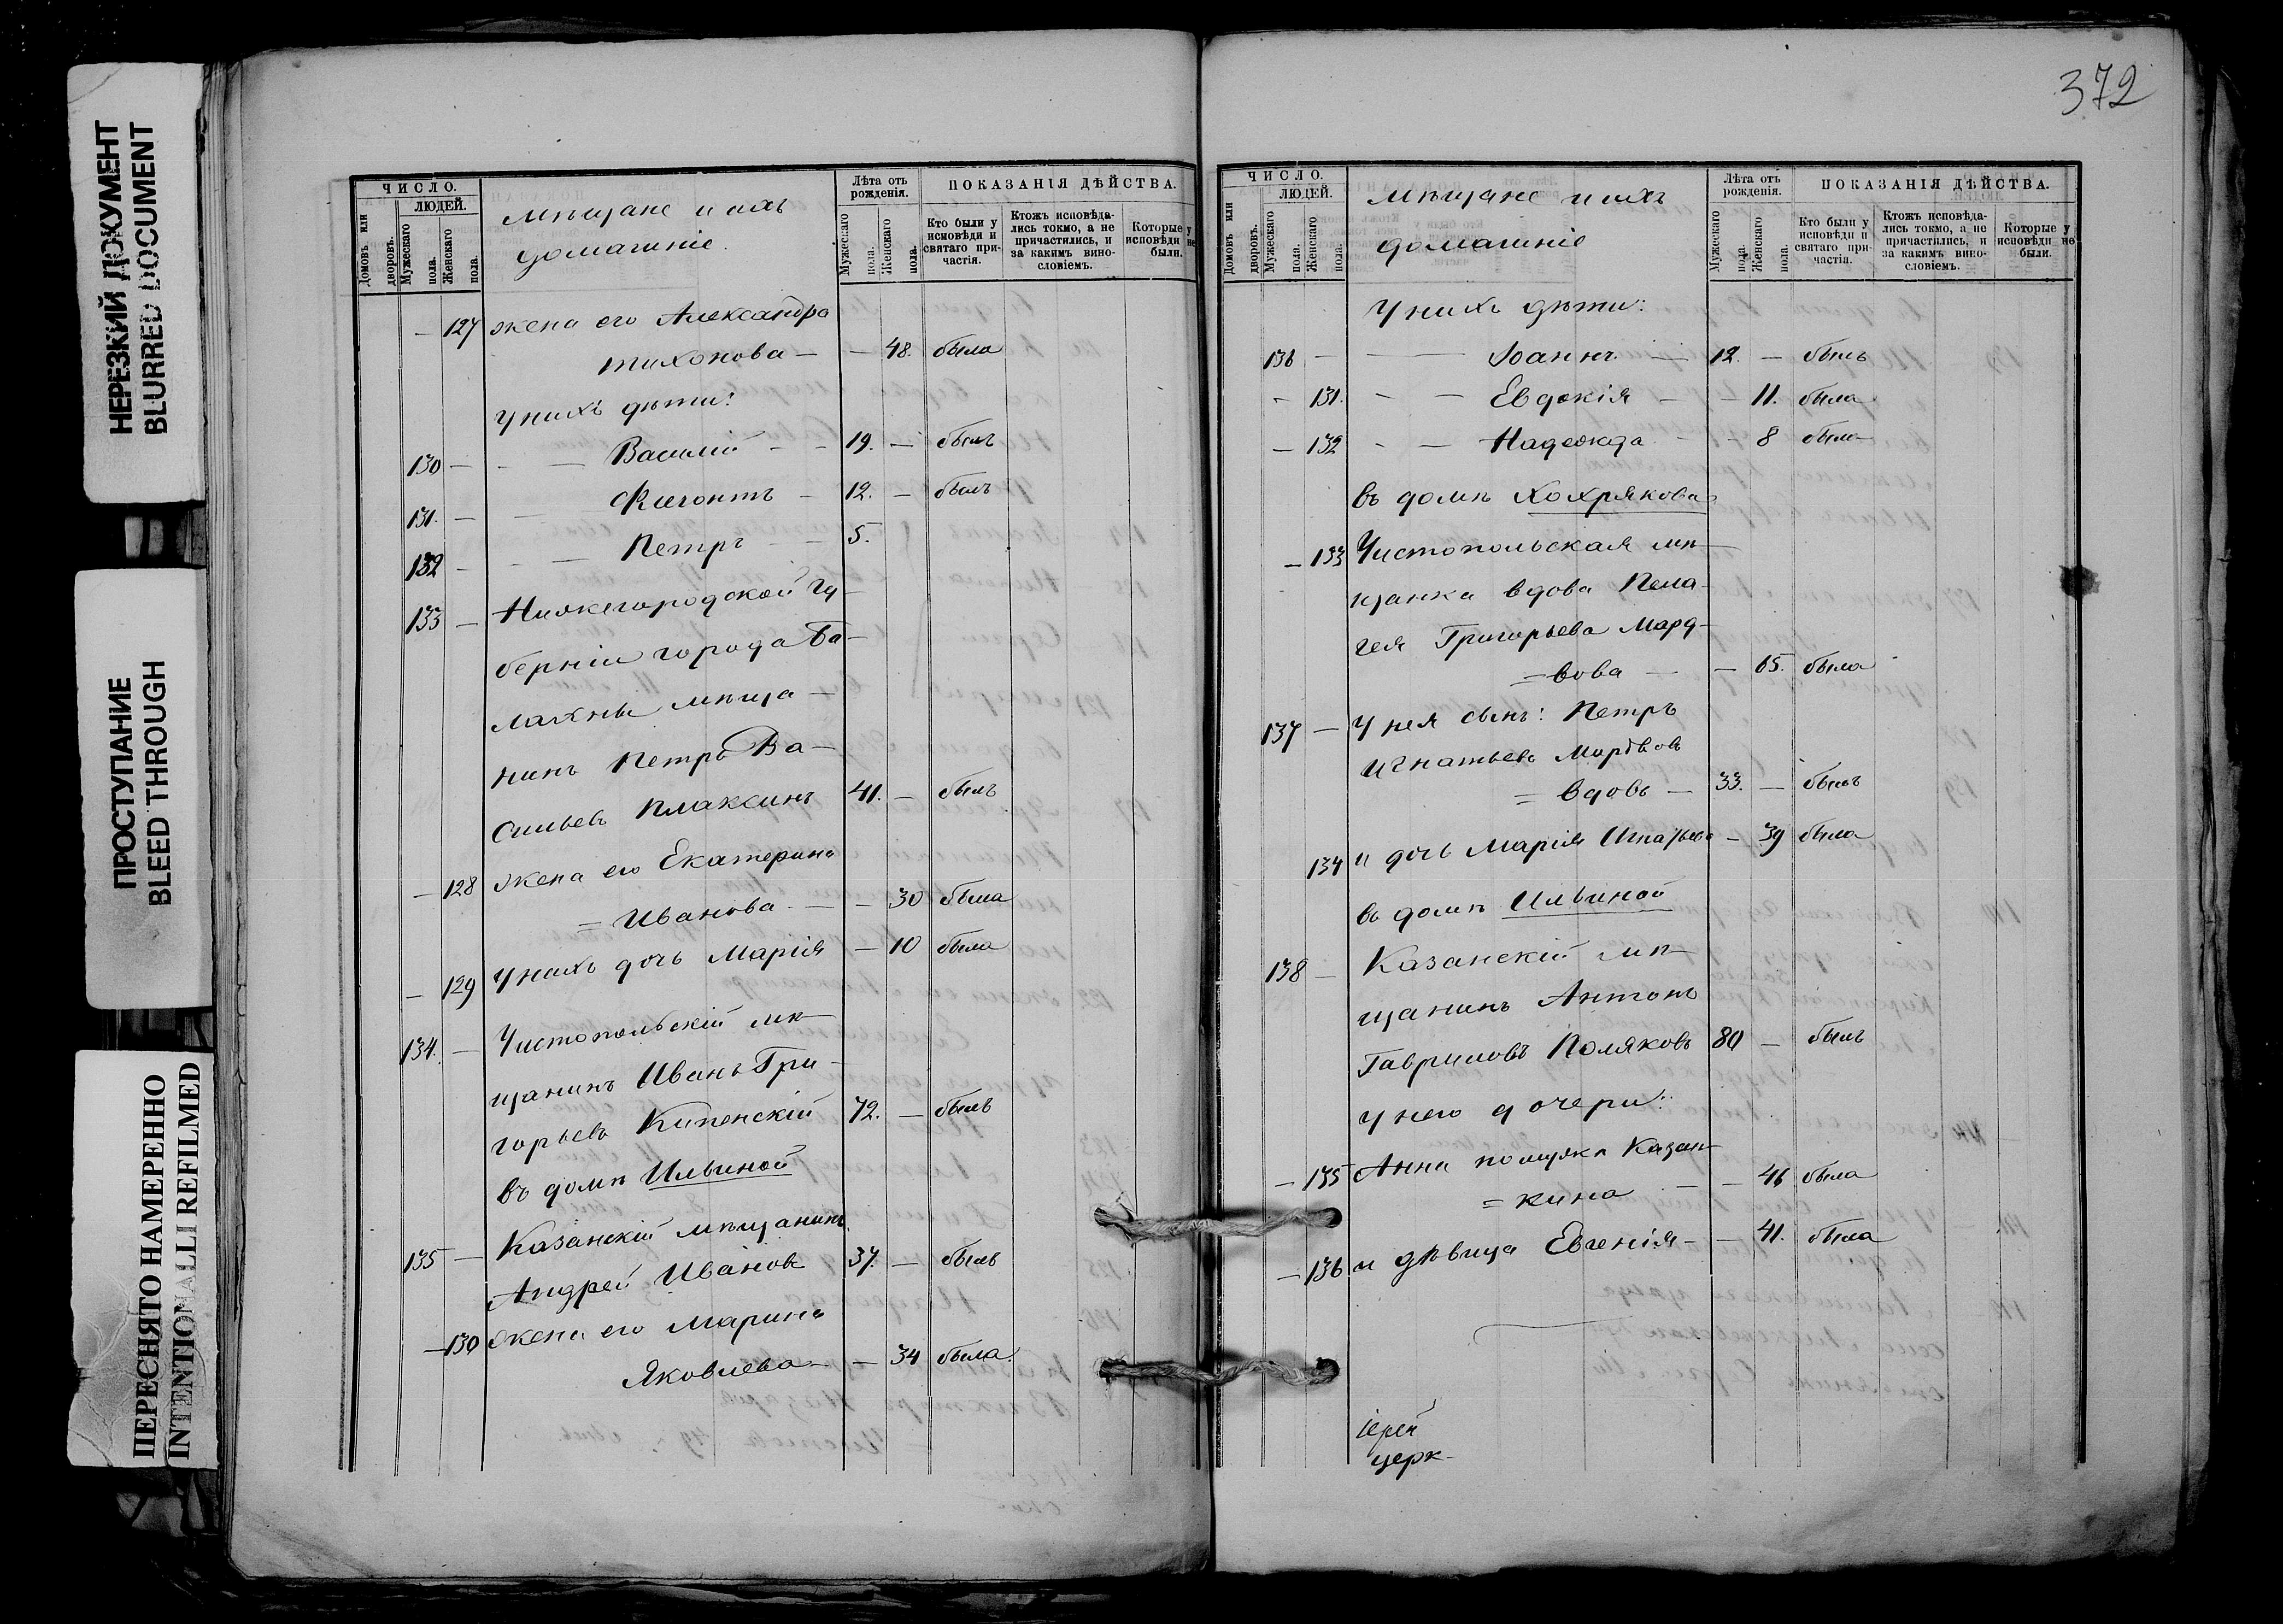 НЕРЕЗКИЙ ДОКУМЕНТ
BLURRED DOCUMENT
ПРОСТУПАНИЕ
BLEED THROUGH
ПЕРЕСНЯТО НАМЕРЕННО
INTENTIONALLI REFILMED
ЧИСЛО.
ЛЮДЕЙ.
Домовъ или дворовъ.
Мужескаго пола.
Женскаго пола.
мѣщане и ихъ
домашніе.
Лѣта отъ рожденія.
Мужескаго пола.
Женскаго пола.
ПОКАЗАНІЯ ДѢЙСТВА.
Кто были у исповѣди и святаго причастія.
Ктожъ исповѣдались токмо, а не причастились, и за какимъ винословіемъ.
Которые у исповѣди не были.
— 127 жена его Александра
Тихонова — — 48. была
у нихъ дѣти:
130 — — — Василій — — 19. — былъ
131. — — — Флегонтъ — 12. — былъ
132 — — — Петръ — — 5.
133 — Нижегородской гу—
берніи города Ба—
лахны мѣща—
нинъ Петръ Ва—
сильевъ Плаксинъ 41. — былъ
— 128 жена его Екатерина
= Иванова — — 30 была
— 129 у нихъ дочь Марія — 10 была
134. — Чистопольскій мѣ—
щанинъ Иванъ Гри—
горьевъ Кипенскій 72. — былъ
въ домѣ Ильиной
135 — Казанскій мѣщанинъ
Андрей Ивановъ 37. — былъ
— 130 жена его Марина
Яковлева — — 34 была.
372
ЧИСЛО.
ЛЮДЕЙ.
Домовъ или дворовъ.
Мужескаго пола.
Женскаго пола.
мѣщане и ихъ
домашніе
Лѣта отъ рожденія.
Мужескаго пола.
Женскаго пола.
ПОКАЗАНІЯ ДѢЙСТВА.
Кто были у исповѣди и святаго причастія.
Ктожъ исповѣдались токмо, а не причастились, и за какимъ винословіемъ.
Которые у исповѣди не были.
У нихъ дѣти:
136 — — — Іоаннъ — 12. — былъ
— 131. — — Евдокія — — 11. была
— 132 — — Надежда — — 8 была
въ домѣ Хохрякова
— 133 Чистопольская мѣ—
щанка вдова Пела—
гея Григорьева Мард—
= вова — — 65. была
137 — У нея сынъ: Петръ
Игнатьевъ
= вдовъ — 33. — былъ
134 и дочь Марія Игнатьева — 39 была
въ домѣ Ильиной
138 — Казанскій мѣ—
щанинъ Антонъ
Гавриловъ Поляковъ 80 — былъ
у него дочери:
— 135 Анна Казан—
= кина — — 46 была
— 136 и дѣвица Евгенія — — 41. была
іерей
церк—